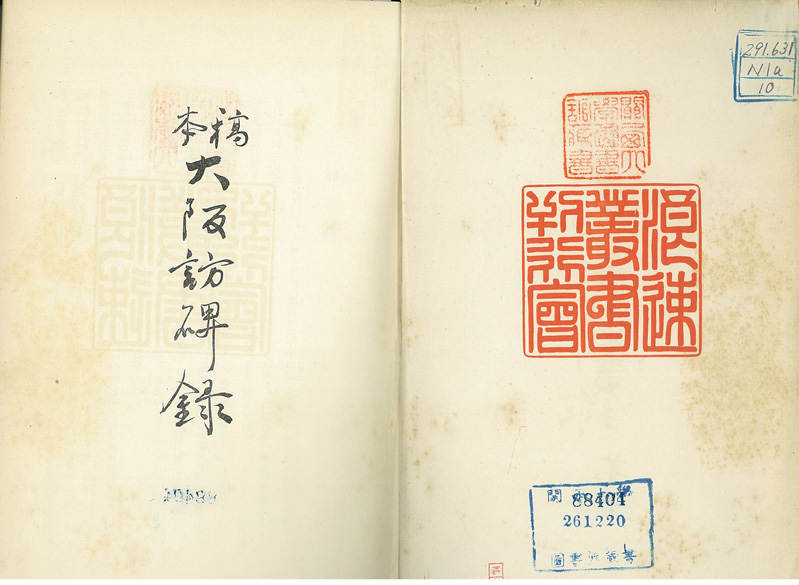 稿本
大阪訪碑録
291.631
N1a
10
浪速
叢書
刊行會
88404
261220